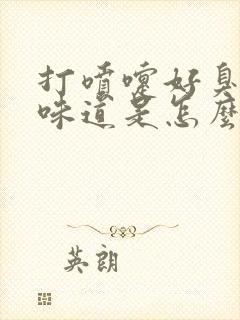 打喷嚏好臭
味道是怎麽
英朗